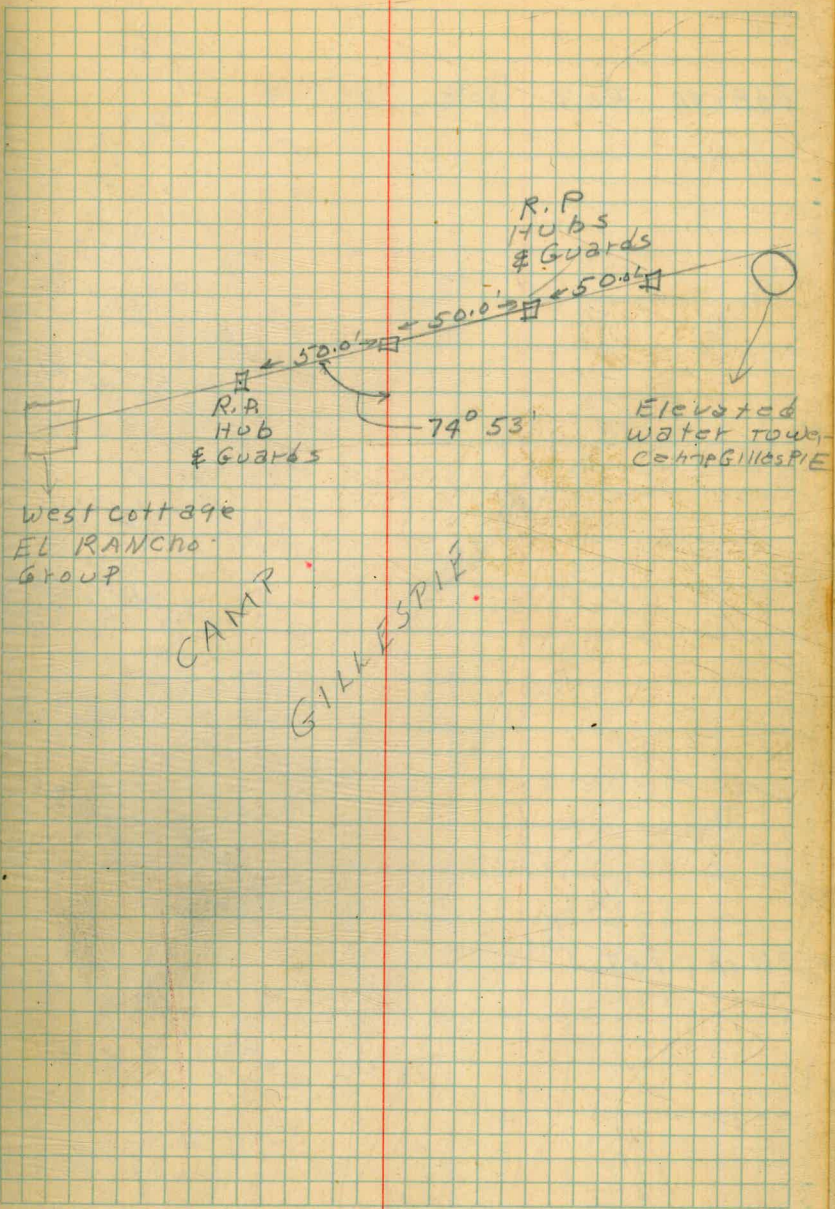 R.P
Hubs
& Guards
50.0'
50.0'
50.0'
R.P.
Hub
& Guards
74° 53'
Elevated
Water Tower
Camp GillesPIE
West Cottage
EL RANCHO
Group
CAMP
GILLESPIE